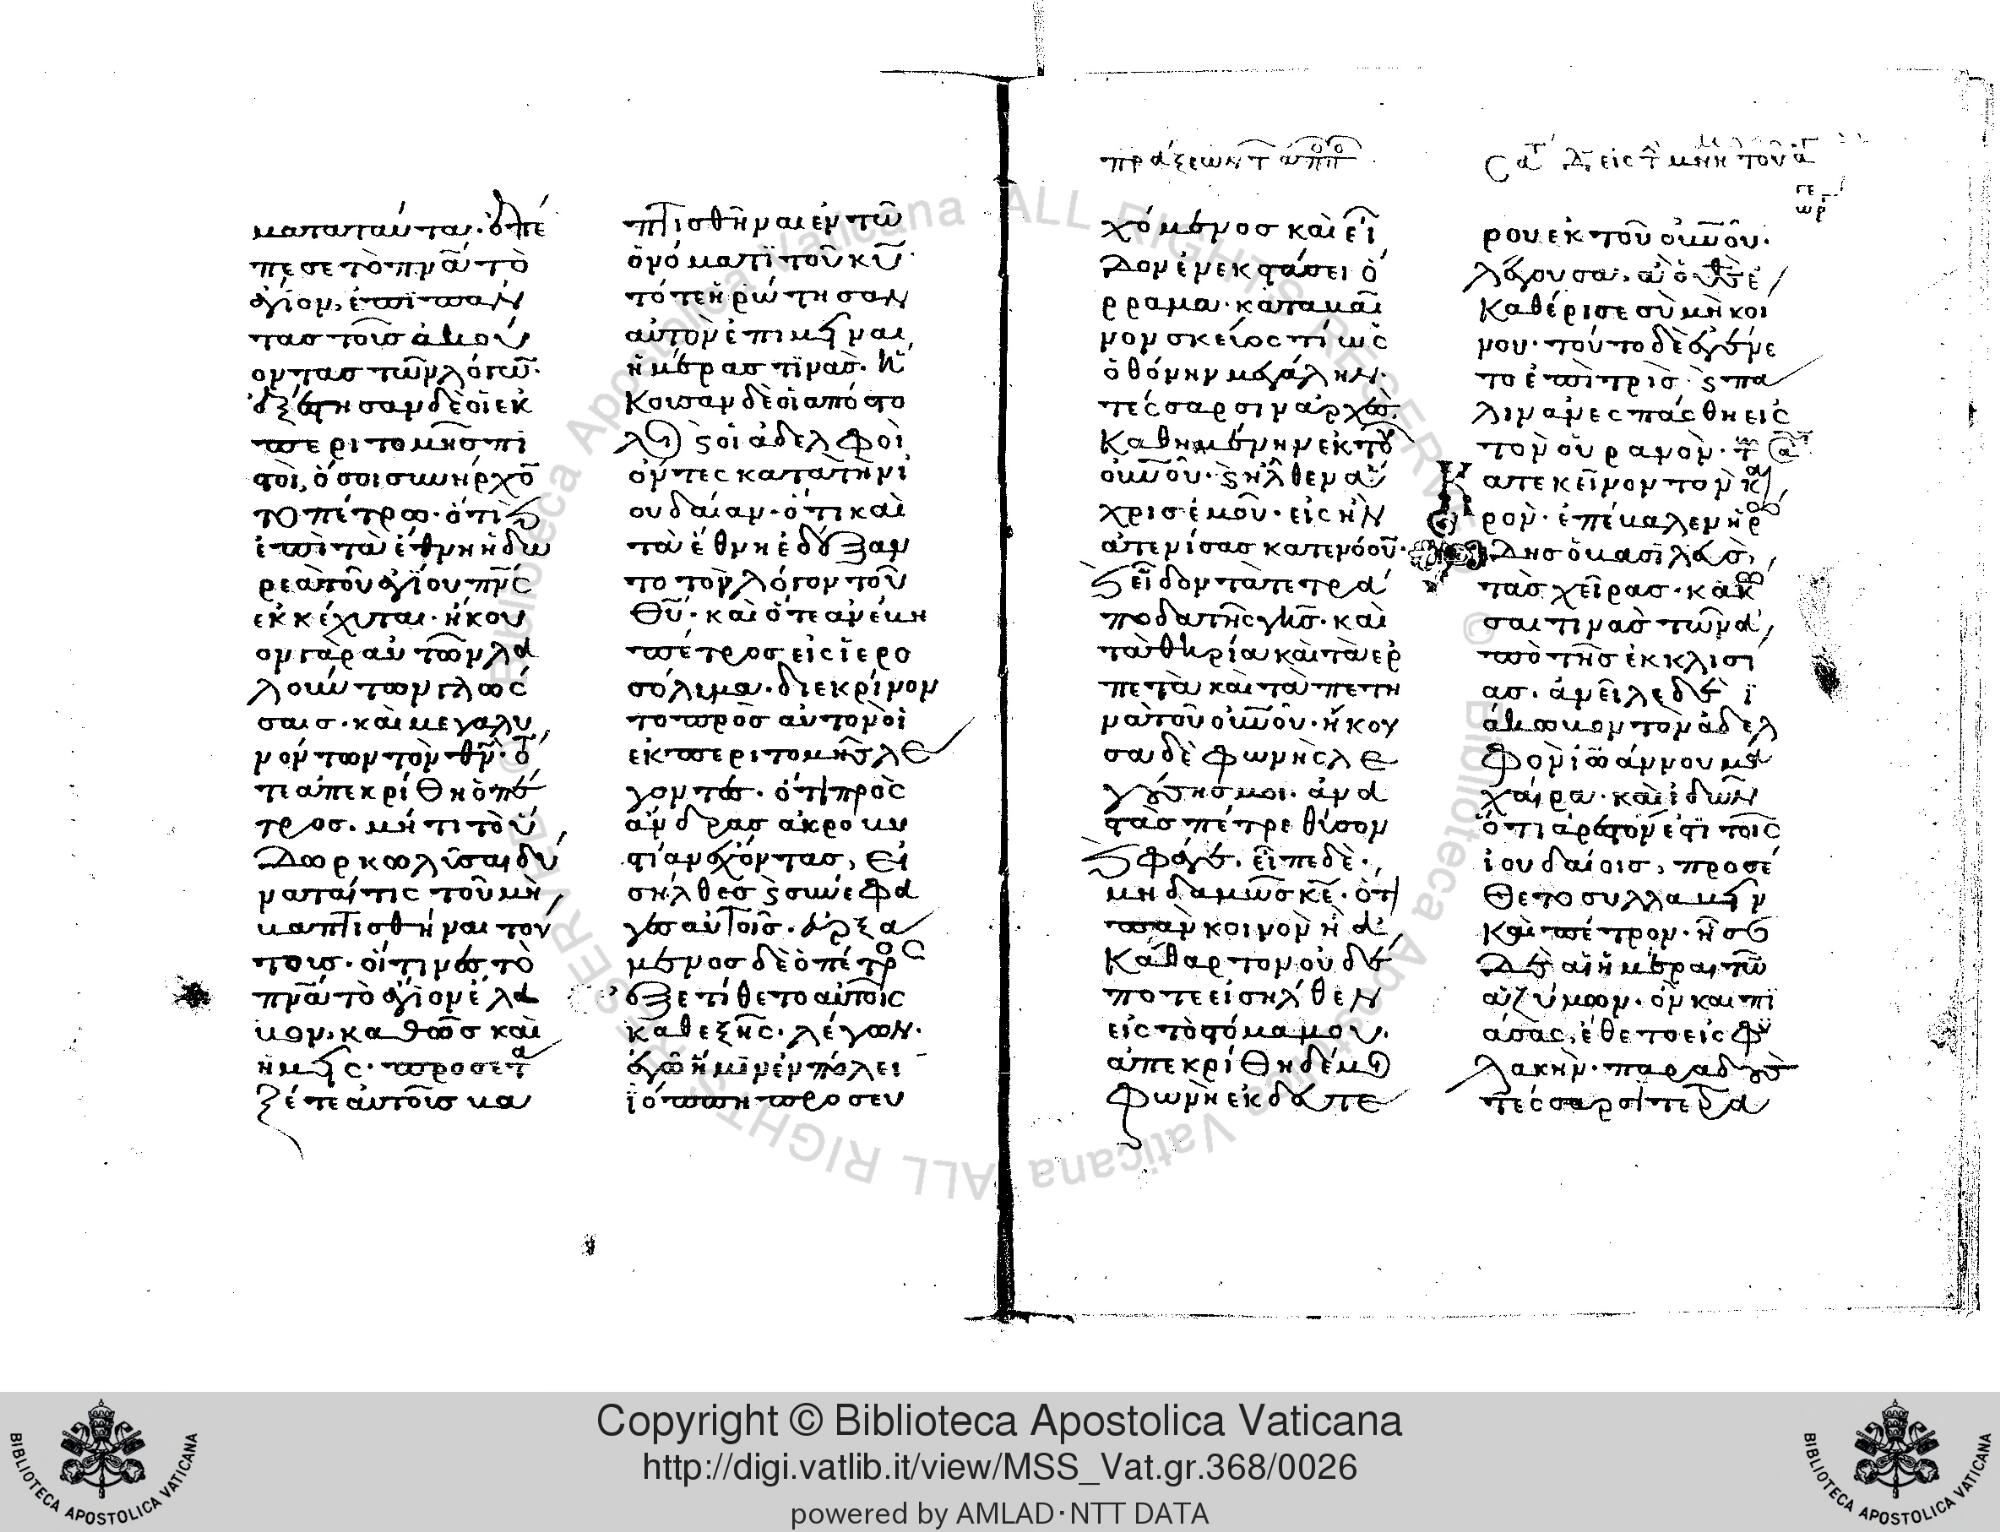 ματα ταῦτα· ἐπέ
πεσε τὸ πνᾶ τὸ
ἅγιον, ἐπὶ πάν
τας τοὺς ἀκού
οντας τῶν λόγω̅·
ἐξέστησαν δὲ οἱ ἐκ
περιτομῆς πι
στοὶ, ὅσοι συνῆρχο̅
τω πέτρω· ὅτι ϗ
ἐπὶ τὰ ἔθνη ἡ δω
ρεὰ τοῦ ἁγίου πνς
ἐκκέχυται· ἤκου
ον γὰρ αὐτῶν λα
λούντων γλώσ
σαις· καὶ μεγαλυ
νόντων τὸν θν· τό
τε ἀπεκρίθη ὁ πέ
τρος· μήτι τὸ ὕ
δωρ κωλῦσαι δύ
ναταί τις τοῦ μὴ
βαπτισθῆναι του
τους· οἵτινες τὸ
πνᾶ τὸ ἅγιον ἔλα
βον, καθὼς καὶ
ἡμεῖς· προσέτα
ξέ τε αὐτοὺς βα
πτισθῆναι ἐν τῶ
ὀνόματι τοῦ κυ·
τότε ἠρώτησαν
αὐτὸν ἐπιμεῖναι
ἡμέρας τινὰς· ἤ
κουσαν δὲ οἱ ἀπόστο
λοι ϗ οἱ ἀδελφοὶ οἱ
ὄντες κατὰ τὴν ἰ
ουδαίαν· ὅτι καὶ
τὰ ἔθνη ἐδέξαν
το τὸν λόγον τοῦ
θυ· καὶ ὅτε ἀνέβη
πέτρος εἰς ἱερο
σόλυμα· διεκρίνον
το πρὸς αὐτὸν οἱ
ἐκ περιτομῆς λέ
γοντες· ὅτι πρὸς
ἄνδρας ἀκροβυ
στίαν ἔχοντας, εἰ
σῆλθες ϗ συνέφα
γες αὐτοῖς· ἀρξά
μενος δὲ ὁ πέτρος
ἐξετίθετο αὐτοῖς
καθεξῆς· λέγων·
ἐγὼ ἤμην ἐν πόλει
ἰόππη προσευ
πράξεων τ̅ ἀπο
Σα Δ εἰς τ̅ μνη τοῦ ἁγ
γε
ωρ
χόμενος καὶ εἶ
δον ἐν ἐκστάσει ὅ
ραμα· καταβαῖ
νον σκεῦος τι ὡς
ὀθόνην μεγάλην·
τέσσαρσιν ἀρχαῖς
καθιεμένην ἐκ του
οὐνοῦ· ϗ ἦλθεν ἄ
χρις ἐμοῦ· εἰς ἣν
ἀτενίσας κατενόουν·
ϗ εἶδον τὰ τετρά
ποδα τῆς γῆς· καὶ
τὰ θηρία καὶ τὰ ἑρ
πετὰ καὶ τὰ πετει
νὰ τοῦ οὐνοῦ· ἤκου
σα δὲ φωνῆς λε
γούσης μοι· ἀνα
στὰς πέτρε θύσον
ϗ φάγε· εἶπε δὲ·
μηδαμῶς κε· ὅτι
πᾶν κοινὸν ἢ ἀ
κάθαρτον οὐδέ
ποτε εἰσῆλθεν
εἰς τὸ στόμα μου·
ἀπεκρίθη δέ μοι
φωνὴ ἐκ δευτέ
ρου ἐκ τοῦ οὐνοῦ·
λέγουσα, ἃ ὁ θς ἐ
καθέρισε σὺ μὴ κοί
νου· τοῦτο δὲ ἐγένε
το ἐπὶ τρὶς· ϗ πά
λιν ἀνεσπάσθη εἰς
τὸν οὐρανὸν·
Κατ ἐκεῖνον τὸν και
ρὸν· ἐπέβαλεν ἡρώ
δης ὁ βασιλεὺς,
τὰς χεῖρας· κακῶ
σαι τινὰς τῶν ἀ
πὸ τῆς ἐκκλισί
ας· ἀνεῖλε δὲ ἰ
άκωβον τὸν ἀδελ
φὸν ἰωάννου μα
χαίρα· καὶ ἰδὼν
ὅτι ἀρεστόν ἐστι τοῖς
ἰουδαίοις, προσέ
θετο συλλαβεῖν
καὶ πέτρον· ἦσαν
δὲ αἱ ἡμέραι τῶ
ἀζύμων· ὃν καὶ πι
άσας, ἔθετο εἰς φυ
λακὴν· παραδοὺς
τέσσαρσι τετρα
Copyright © Biblioteca Apostolica Vaticana
http://digi.vatlib.it/view/MSS_Vat.gr.368/0026
powered by AMLAD·NTT DATA
BIBLIOTECA APOSTOLICA VATICANA
BIBLIOTECA APOSTOLICA VATICANA